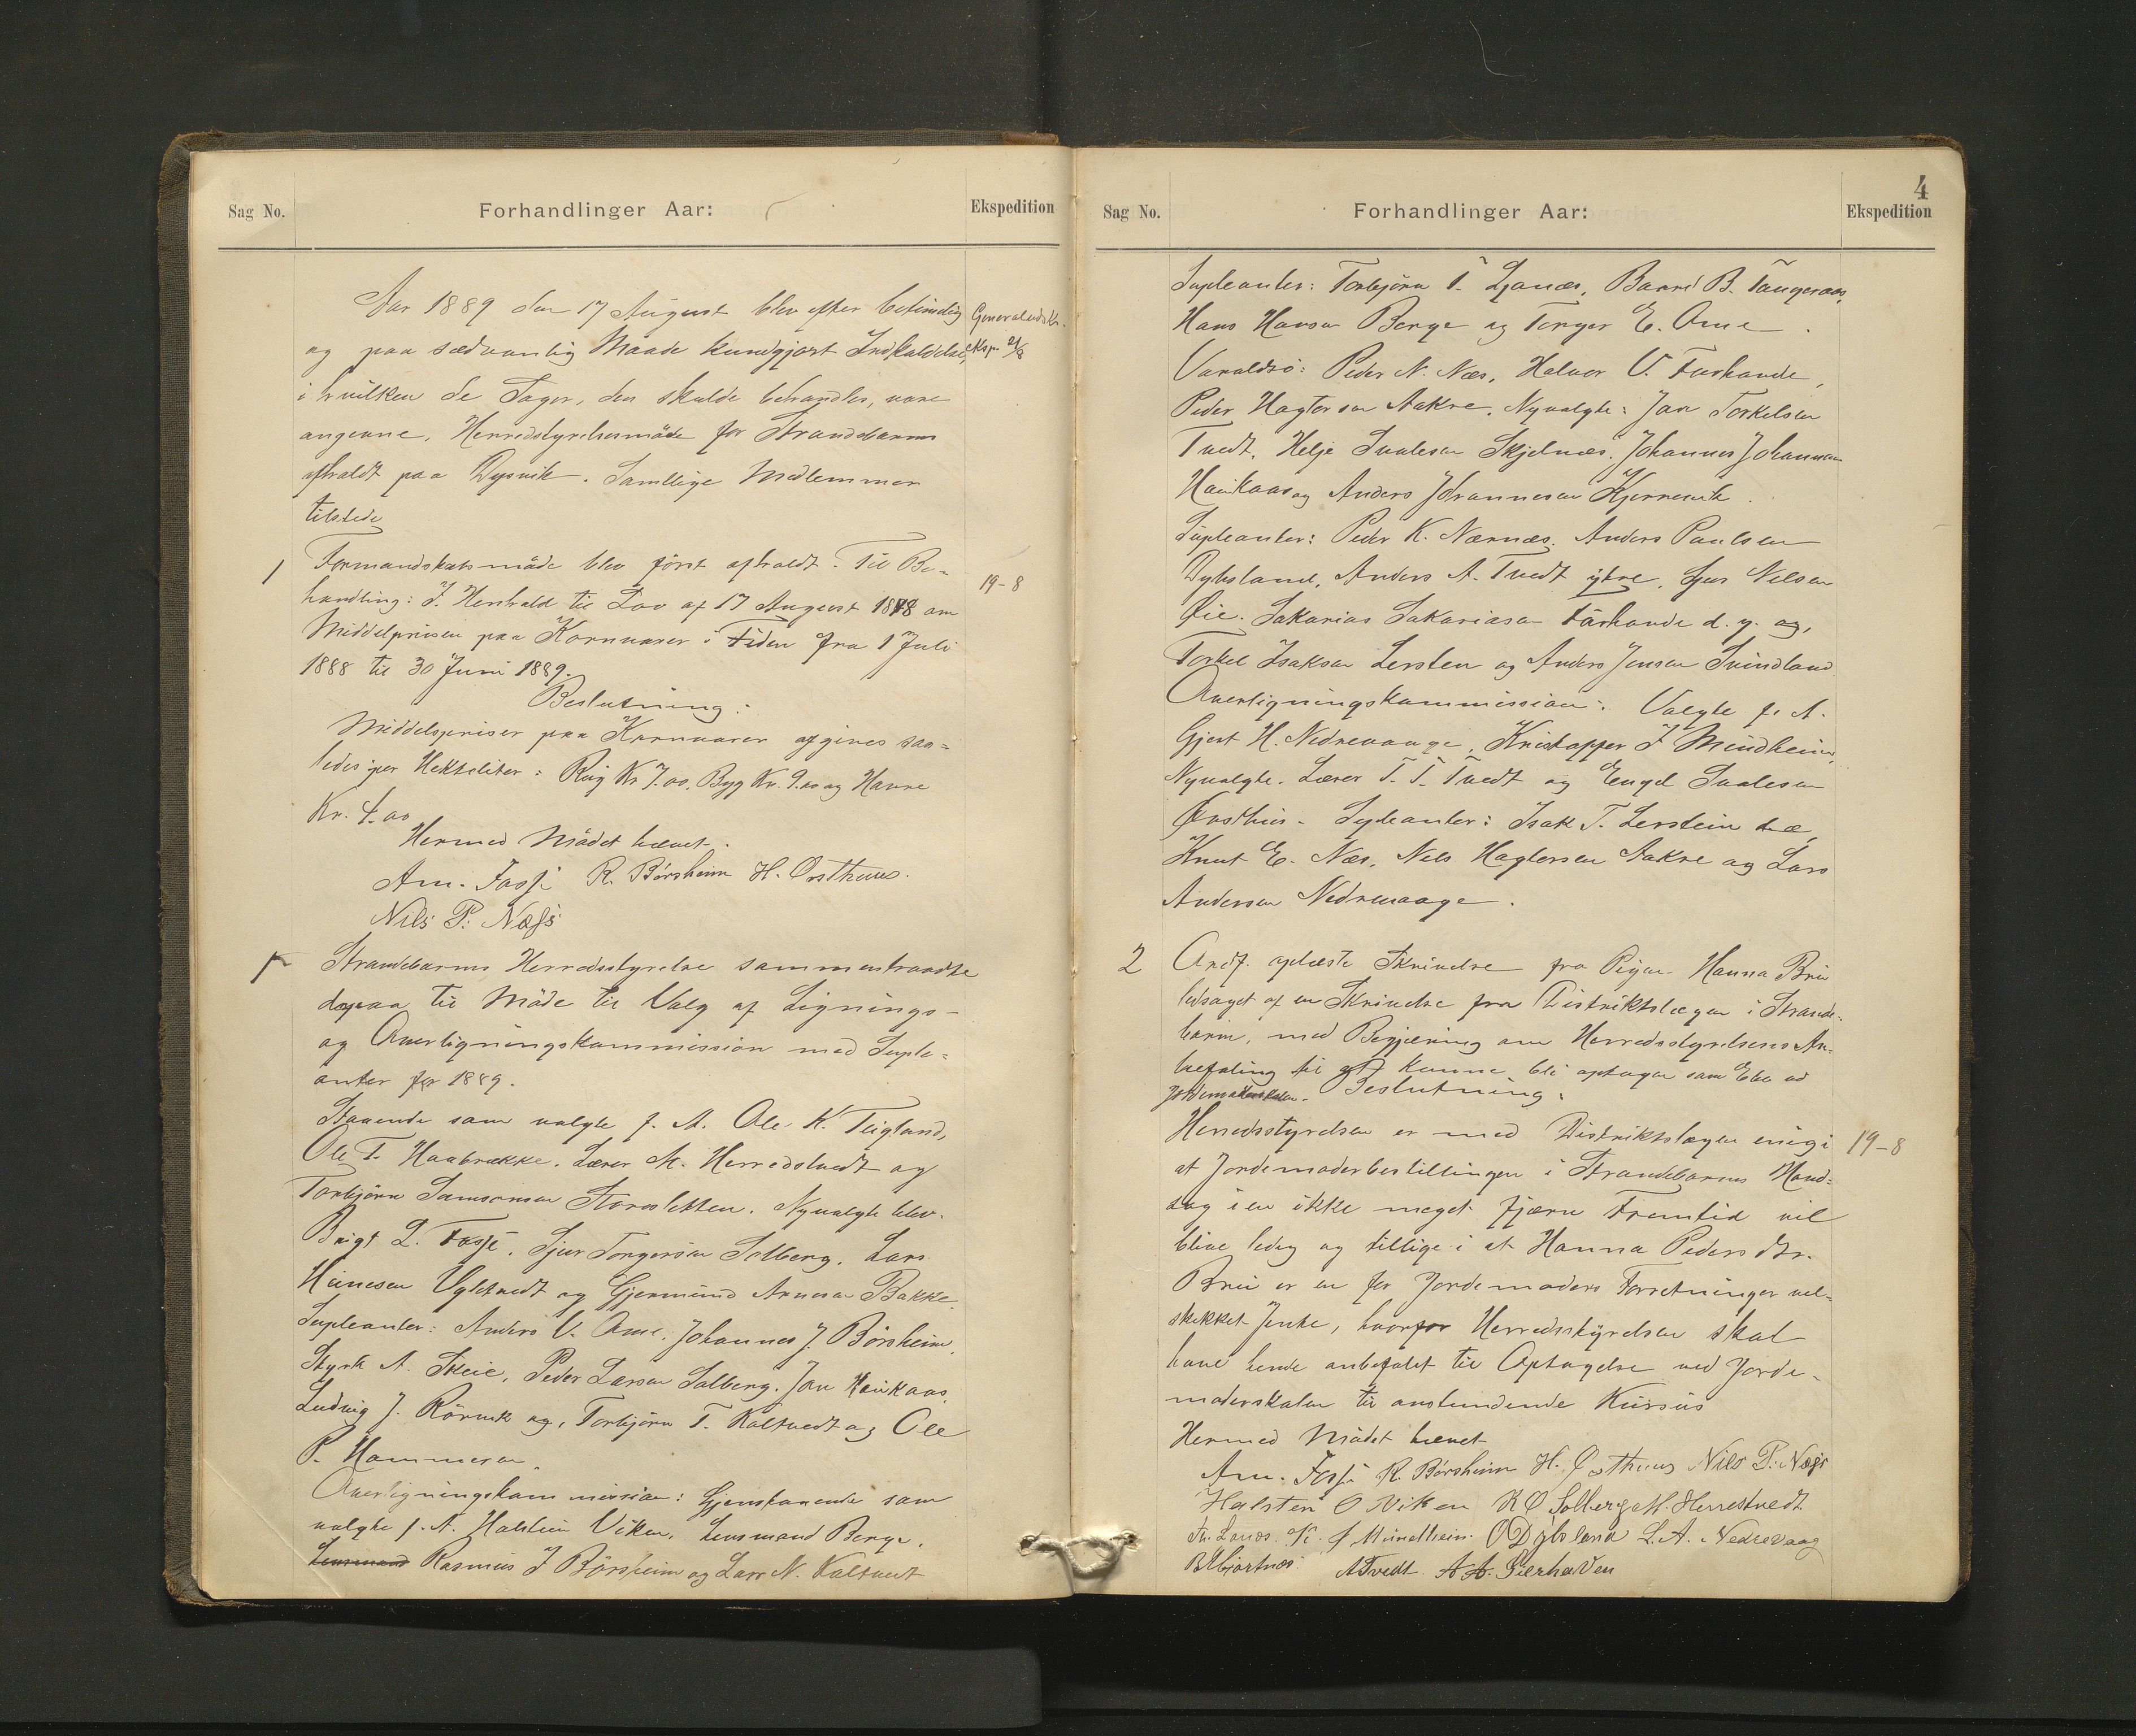 Sag No.
Forhandlinger Aar:
Ekspedition
Aar 1889 den 17 August blev efter betimelig
og paa sædvanlig Maade kundgjort Indkaldelse,
i hvilken de Sager, der skulde behandles, vare
angevne, Herredstyrelsesmöde for Strandebarm
afholdt paa Dysvik. Samtlige Medlemmer
tilstede
eksp. 21/8
1
Formandskabsmöde blev först afholdt. Til Be-
handling: I Henhold til Lov af 17 August 1818 om
Middelprisen paa Kornvarer i Tiden fra 1 Juli
1888 til 30 Juni 1889.
19-8
Beslutning:
Middelspriser paa Kornvarer afgives saa-
ledes per Hektoliter: Rug Kr 7.00, Byg Kr. 9.00 og Havre
Kr. 4.00
Hermed Mödet hævet.
Am. Fosse R. Börsheim H. Örsthuus.
Nils P. Næss
1
Strandebarms Herredsstyrelse sammentraadte
depaa til Möde til Valg af Lignings-
og Overligningskommission med Suple-
anter for 1889.
Staaende som valgte f. A. Ole K. Teigland,
Ole T. Haabrække. Lærer M. Herredstvedt og
Torbjörn Samsonsen Storesletten. Nyvalgte blev.
Brigt L. Fosse, Sjur Torgersen Solberg, Lars
Heinesen Ygletvedt og Gjermund Arnesen Bakke.
Supleanter: Anders V. Ome, Johannes J. Börsheim,
Styrk A. Skeie, Peder Larsen Solberg. Jon Haukaas,
Ludvig J. Rörvik og, Torbjörn T. Kaltvedt og Ole
P. Hammeren.
Overligningskommission: Gjenstaaende som
valgte f. A. Halstein Viken, Lensmand Berge,
Lensmand Rasmus J Börsheim og Lars N. Kaltvedt
4
Sag No.
Forhandlinger Aar:
Ekspedition
Supleanter: Torbjörn T. Ljones, Baard B. Tangeraas,
Hans Hansen Berge og Torger E. Ome.
Varaldsö: Peder N. Næs, Halvor V. Tushande,
Peder Hagtorsen Aakre. Nyvalgte: Jon Torkelsen
Tvedt, Helje Svalesen Skjelnæs, Johannes Johannesen
Haukaas og Anders Johannesen Kjerrevik.
Supleanter: Peder K. Nærnæs, Anders Paulsen
Dybsland, Anders A. Tvedt ytre, Sjur Nilsen
Öie. Sakarias Sakariasen d. y. og,
Torkel Isaksen Lerstein og Anders Jensen Svindland
Overligningskommission: Valgte f. A.
Gjert H. Nedrevaage, Kristoffer J Mundheim,
Nyvalgte. Lærer T. T. Tvedt og Engel Svalesen
Örsthus. Supleanter: Isak T. Lerstein
Knut E. Næs, Nils Hagtorsen Aakre og Lars
Andersen Nedrevaage.
2
Andf. oplæste Skrivelse fra Pigen Hanna Brie
ledsaget af en Skrivelse fra Distriktslægen i Strande-
barm, med Begjæring om Herredsstyrelsens An-
befaling til at kunne bli optagen som Elev ved
Jordemoderskolen. Beslutning:
Herredsstyrelsen er med Distriktslægen enig i
at Jordemoderbestillingen i Strandebarms Hoved-
sog i en ikke meget fjærn Fremtid vil
blive ledig og tillige i at Hanna Peders dtr.
Brie er en for Jordemoders Forretninger vel-
skikket Jente, hvorfor Herredsstyrelsen skal
have hende anbefalet til Optagelse ved Jorde-
moderskolen til anstundende Kursus
19-8
Hermed Mödet hævet
Am. Fosse R. Börsheim H. Örsthuus Nils P. Næss
Halsten O Viken K Ø Solberg M. Herrestvedt
K. J Mundheim. O Dybsland L. A. Nedrevaag
A Tvedt A A. Gierhaven